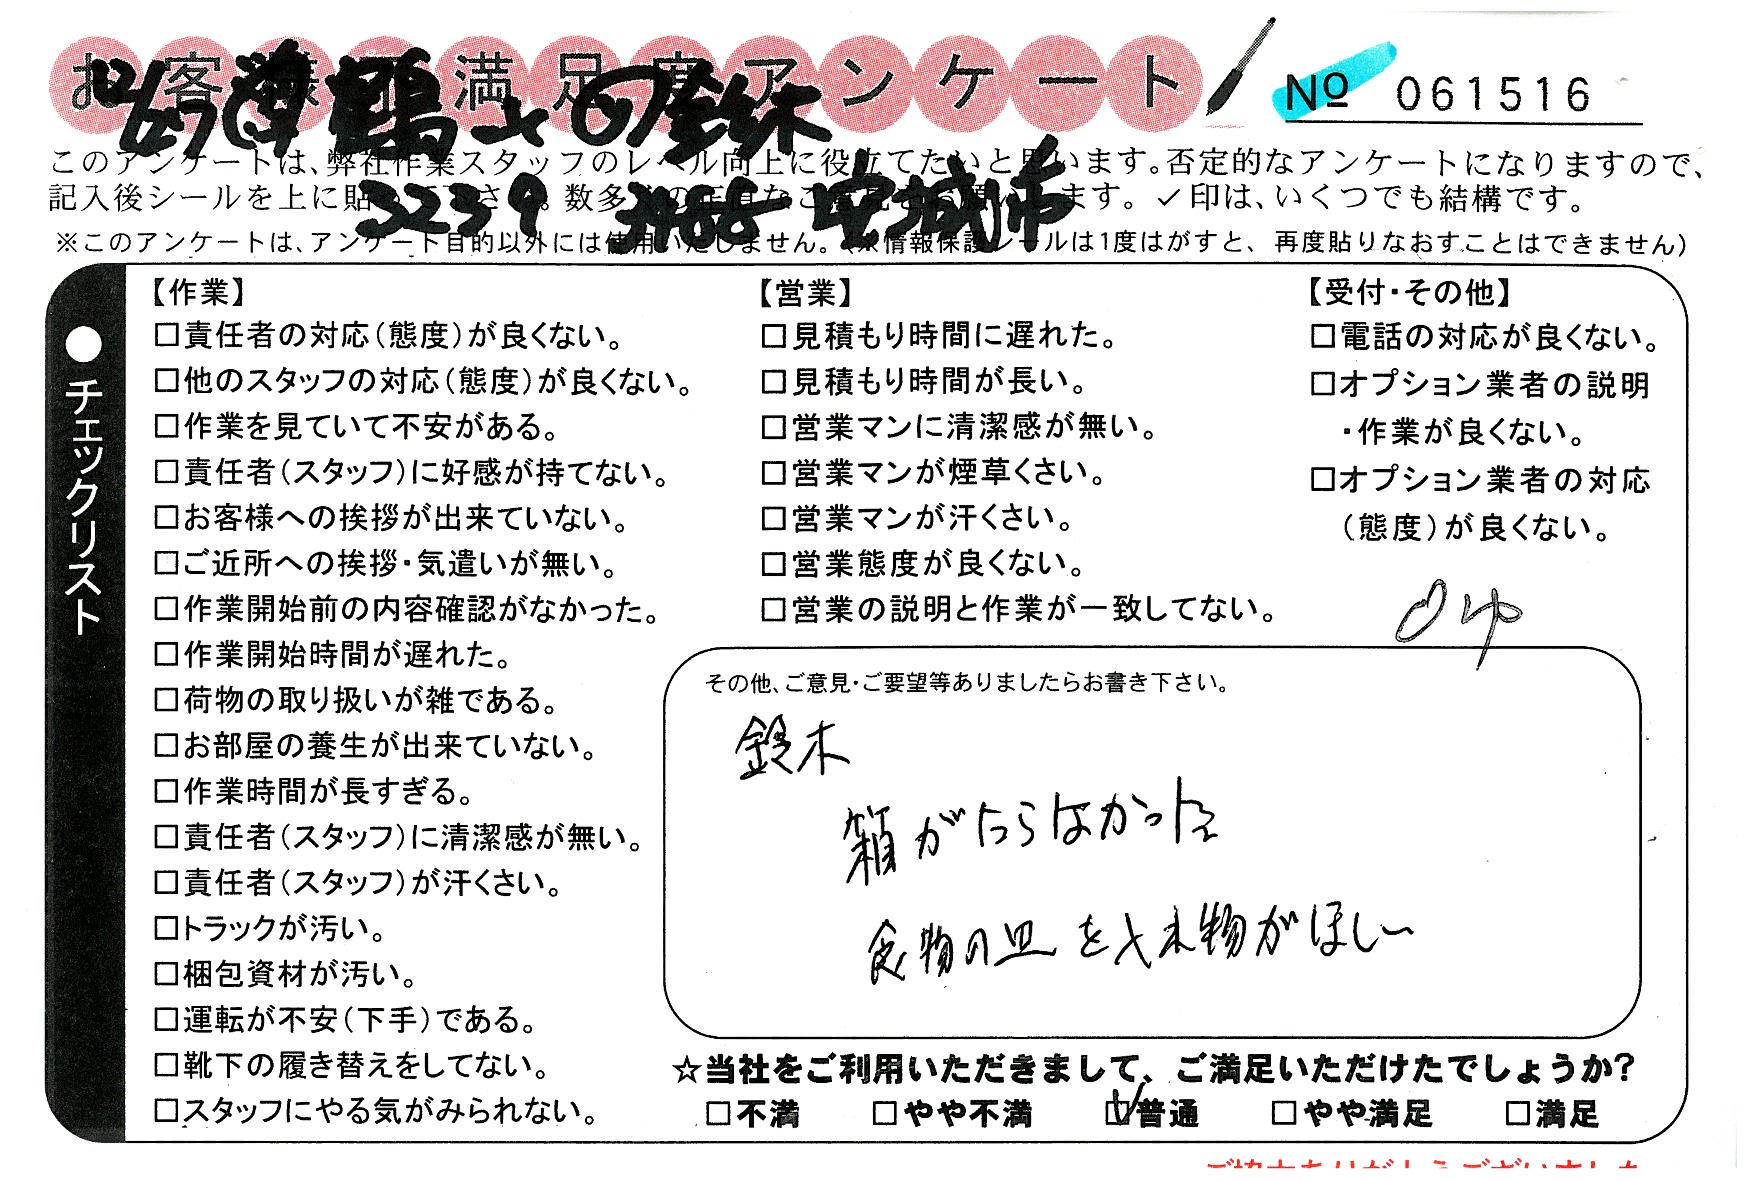 お客様不満足度アンケート
№ 061516
このアンケートは、弊社作業スタッフのレベル向上に役立てたいと思います。否定的なアンケートになりますので、
記入後シールを上に貼 さ 。数多 の正直なご意見を ます。✓印は、いくつでも結構です。
2239 3988 安城市
※このアンケートは、アンケート目的以外には使用いたしません。(※情報保護シールは1度はがすと、再度貼りなおすことはできません)
●チェックリスト
【作業】
□責任者の対応(態度)が良くない。
□他のスタッフの対応(態度)が良くない。
□作業を見ていて不安がある。
□責任者(スタッフ)に好感が持てない。
□お客様への挨拶が出来ていない。
□ご近所への挨拶・気遣いが無い。
□作業開始前の内容確認がなかった。
□作業開始時間が遅れた。
□荷物の取り扱いが雑である。
□お部屋の養生が出来ていない。
□作業時間が長すぎる。
□責任者(スタッフ)に清潔感が無い。
□責任者(スタッフ)が汗くさい。
□トラックが汚い。
□梱包資材が汚い。
□運転が不安(下手)である。
□靴下の履き替えをしてない。
□スタッフにやる気がみられない。
【営業】
□見積もり時間に遅れた。
□見積もり時間が長い。
□営業マンに清潔感が無い。
□営業マンが煙草くさい。
□営業マンが汗くさい。
□営業態度が良くない。
□営業の説明と作業が一致してない。
【受付・その他】
□電話の対応が良くない。
□オプション業者の説明
・作業が良くない。
□オプション業者の対応
(態度)が良くない。
その他、ご意見・ご要望等ありましたらお書き下さい。
鈴木
箱がたらなかった
食物の皿を入れ物がほしー
☆当社をご利用いただきまして、ご満足いただけたでしょうか?
□不満 □やや不満 ☑普通 □やや満足 □満足
ご協力ありがとうございました